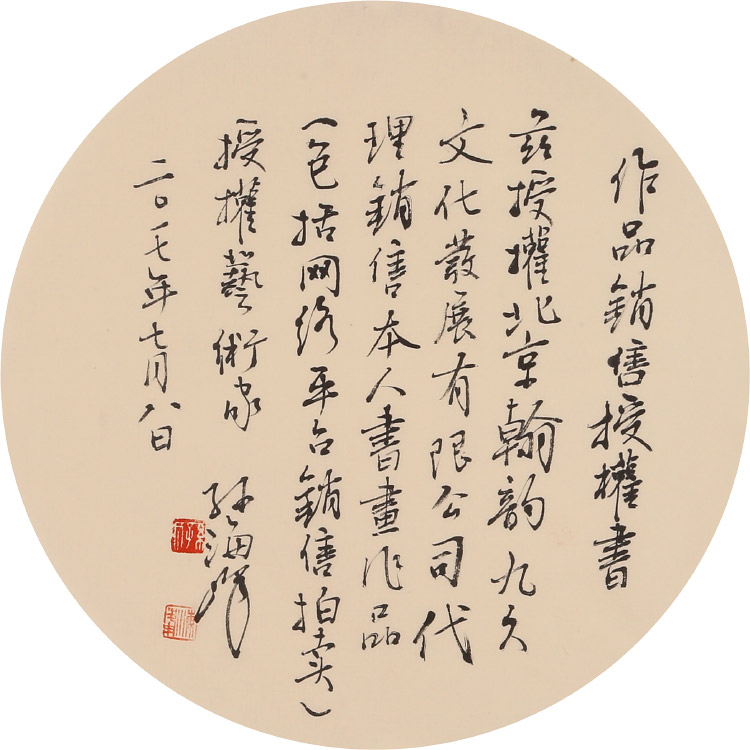 作品銷售授權書
兹授權北京翰韵九久
文化發展有限公司代
理銷售本人書畫作品
(包括网络平台銷售拍卖)
授權藝術家 孙海峰
二〇一七年七月八日